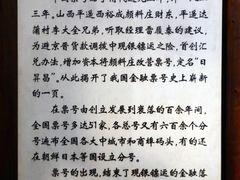 三年。山西平遥西裕成颜料庄财东、平遥达
蒲村李大全兄弟，听取经理雷履泰的建议，
为避京晋贷款调拨中现银镖运之险，首创汇
兑办法，增加资本将颜料庄改营票号，定名“日
昇昌”。从此揭开了我国金融票号史上崭新
的一页。
在票号由创立发展到衰落的百余年间，
全国票号多达51家，各总号又有六百余个分
号遍布全国各大中城市和商埠码头，有的还
在朝鲜日本等国设立分号。
票号的出现，结束了现银镖运的金融落